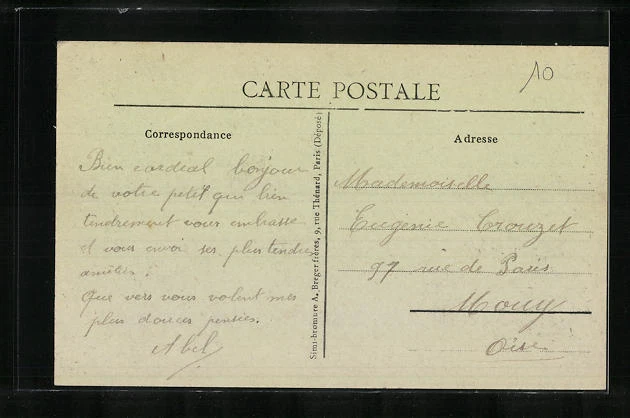 10
CARTE POSTALE
Correspondance
Bien cordial bonjour
de votre petit qui bien
tendrement vous embrasse
et vous envoi ses plus tendres
amitiés.
Que vers vous volent mes
plus douces pensées.
Abel
Simi-bromure A. Breger frères, 9, rue Thénard, Paris (Déposé)
Adresse
Mademoiselle
Eugenie Crouzet
97 rue de Paris
Mouy
Oise